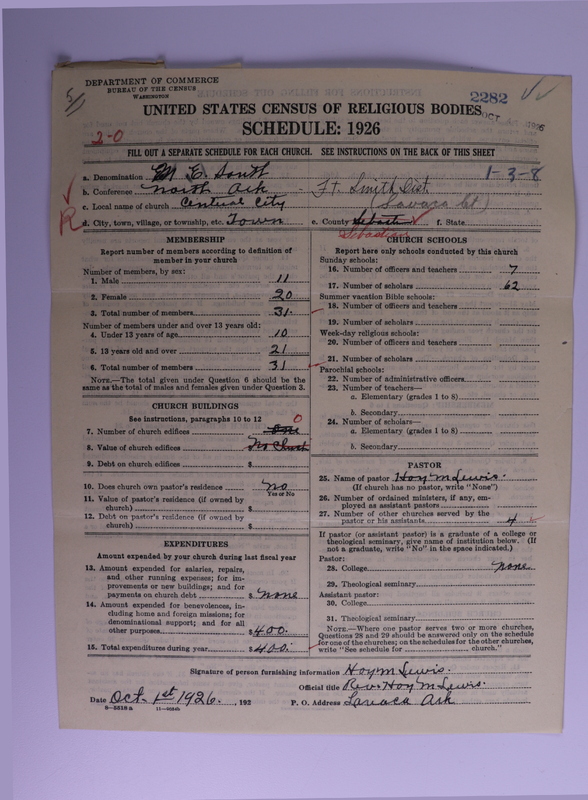 DEPARTMENT OF COMMERCE
BUREAU OF THE CENSUS
WASHINGTON
2282
OCT 1926
UNITED STATES CENSUS OF RELIGIOUS BODIES
SCHEDULE: 1926
2-0
FILL OUT A SEPARATE SCHEDULE FOR EACH CHURCH. SEE INSTRUCTIONS ON THE BACK OF THIS SHEET
a. Denomination M E South 1-3-8
b. Conference North Ark - Ft. Smith Dist.
c. Local name of church Central City (Lavaca Ct)
R
d. City, town, village, or township, etc. Town e. County Sebastian f. State
Sebastian
MEMBERSHIP
Report number of members according to definition of member in your church
Number of members, by sex:
1. Male 11
2. Female 20
3. Total number of members 31.
Number of members under and over 13 years old:
4. Under 13 years of age 10
5. 13 years old and over 21
6. Total number of members 31
NOTE.—The total given under Question 6 should be the
same as the total of males and females given under Question 3.
CHURCH BUILDINGS
See instructions, paragraphs 10 to 12
0
7. Number of church edifices
8. Value of church edifices No Church
9. Debt on church edifices $
10. Does church own pastor's residence? No
Yes or No
11. Value of pastor's residence (if owned by
church) $
12. Debt on pastor's residence (if owned by
church) $
EXPENDITURES
Amount expended by your church during last fiscal year
13. Amount expended for salaries, repairs,
and other running expenses; for im-
provements or new buildings; and for
payments on church debt $ None
14. Amount expended for benevolences, in-
cluding home and foreign missions; for
denominational support; and for all
other purposes $ 400.
15. Total expenditures during year $ 400.
CHURCH SCHOOLS
Report here only schools conducted by this church
Sunday schools:
16. Number of officers and teachers 7
17. Number of scholars 62
Summer vacation Bible schools:
18. Number of officers and teachers
19. Number of scholars
Week-day religious schools:
20. Number of officers and teachers
21. Number of scholars
Parochial schools:
22. Number of administrative officers
23. Number of teachers—
a. Elementary (grades 1 to 8)
b. Secondary
24. Number of scholars—
a. Elementary (grades 1 to 8)
b. Secondary
PASTOR
25. Name of pastor Hoy M Lewis.
(If church has no pastor, write "None")
26. Number of ordained ministers, if any, em-
ployed as assistant pastors
27. Number of other churches served by the
pastor or his assistants 4
If pastor (or assistant pastor) is a graduate of a college or
theological seminary, give name of institution below. (If
not a graduate, write "No" in the space indicated.)
Pastor:
28. College None
29. Theological seminary
Assistant pastor:
30. College
31. Theological seminary
NOTE.—Where one pastor serves two or more churches,
Questions 28 and 29 should be answered only on the schedule
for one of the churches; on the schedules for the other churches,
write "See schedule for church."
Signature of person furnishing information Hoy M Lewis.
Official title Rev. Hoy M Lewis.
Date Oct. 1st 1926. , 192 P. O. Address Lavaca Ark
8—5818 a